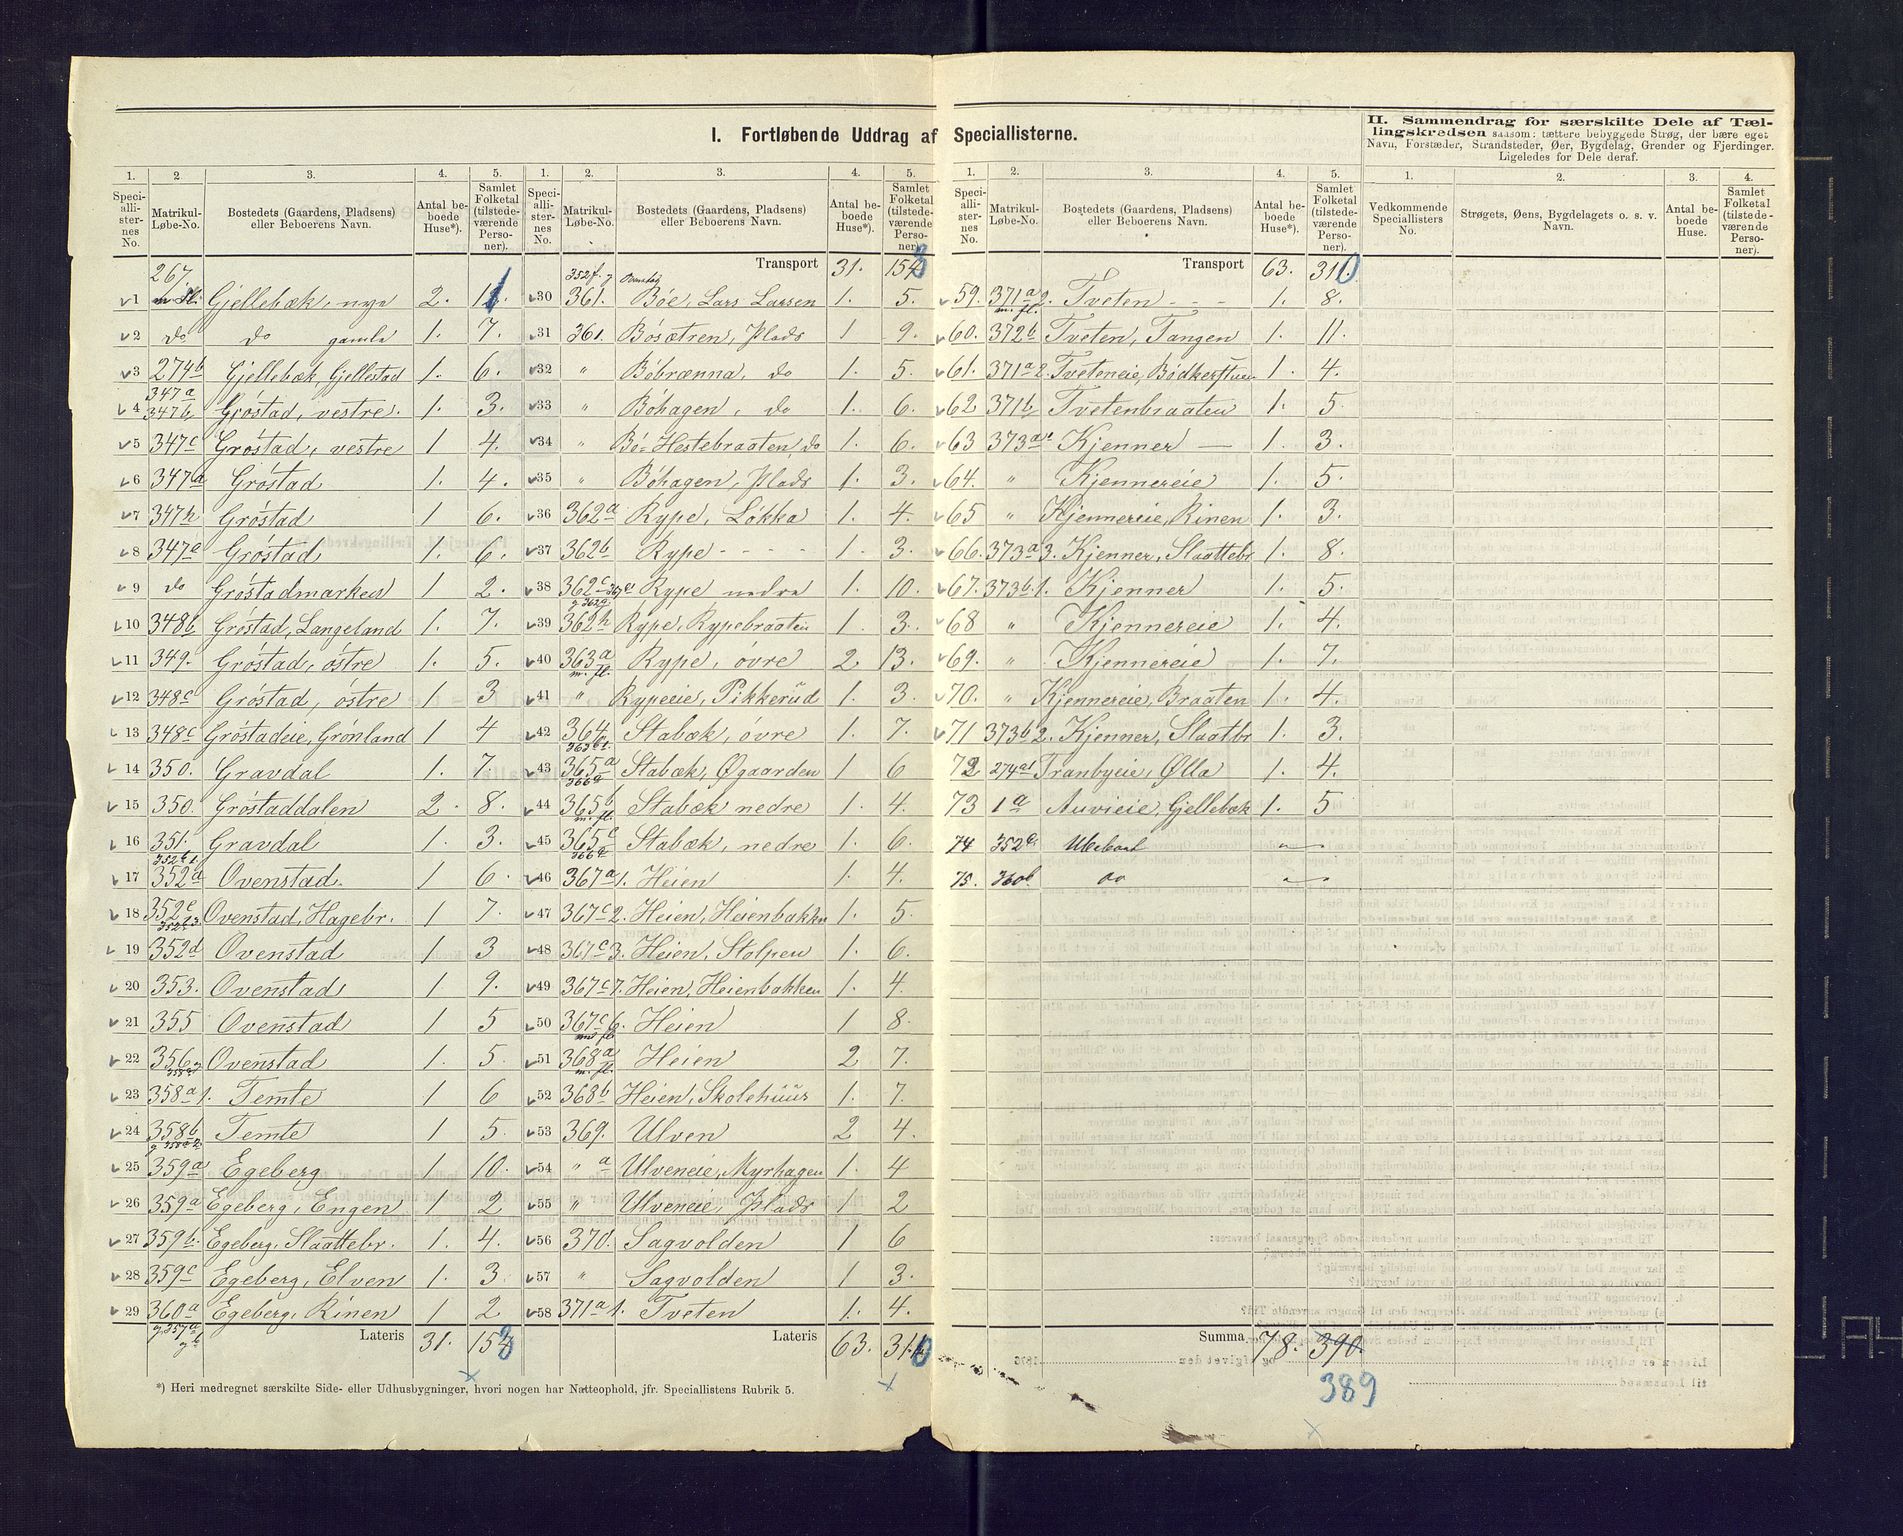 I. Fortløbende Uddrag af Speciallisterne.
II. Sammendrag for særskilte Dele af Tællingskredsen saasom: tættere bebyggede Strøg, der bære eget Navn, Forstæder, Strandsteder, Øer, Bygdelag, Grender og Fjerdinger. Ligeledes for Dele deraf.
1. 2 3. 4. 5.
Speciallisternes No. Matrikul-Løbe-No. Bostedets (Gaardens, Pladsens) eller Beboerens Navn. Antal beboede Huse*). Samlet Folketal (tilstedeværende Personer).
1 267. m. fl. Gjellebæk, nya 2. 11.
2 do do gamla 1. 7.
3 274b Gjellebæk, Gjellestad 1. 6.
4 347a 347b Gróstad, vestre. 1. 3.
5 347c Gróstad, vestre 1 4.
6 347a Gróstad 1. 4.
7 347h Gróstad 1 6.
8 347a Gróstad 1. 6.
9 do Gróstadmarken 1 2.
10 348b Gróstad, Langeland 1. 7.
11 349. Gróstad, óstre 1. 5.
12 348c Gróstad, óstre 1 3
13 348c Gróstadeie, Grónland 1 4
14 350. Gravdal 1. 7.
15 350. Gróstaddalen 2. 8.
16 351. Gravdal 1. 3.
17 352a Ovenstad. 1 6.
18 352c Ovenstad, Hagebr. 1 7.
19 352d Ovenstad 1 3
20 353. Ovenstad 1 9.
21 355 Ovenstad 1 5
22 356 Ovenstad 1 5.
23 358a1. Temte 1 6
24 358b Temte 1 5.
25 359a Egeberg 1 10.
26 359a Egeberg, Engen 1 2
27 359b. Egeberg, Slaattebr. 1. 4.
28 359c Egeberg, Elven 1. 3
29 360a Egeberg, Rinen 1 2
Lateris 31. 153
1. 2. 3. 4. 5.
Speciallisternes No. Matrikul-Løbe-No. Bostedets (Gaardens, Pladsens) eller Beboerens Navn. Antal beboede Huse*). Samlet Folketal (tilstedeværende Personer).
Transport 31. 153
30 361. Bóe, Lars Larsen 1. 5.
31 361. Bósætren, Plads 1 9.
32 " Bóbrænna, do 1. 5.
33 " Bóhagen, do 1. 6.
34 " Bó=Hestebraaten, do 1. 6.
35 " Bóhagen, Plads 1. 3.
36 362a Rype, Lókka 1. 4.
37 362b Rype - - - - 1. 3.
38 362c Rype nedra 1. 10.
39 362h Rype, Rypebraaten 1 3.
40 363a m. fl. Rype, óvre 2 13.
41 " Rypeeie, Pikkerúd 1. 3.
42 364. Stabæk, óvre 1. 7.
43 365a Stabæk, Øgaarden 1 6
44 365b m. fl. Stabæk nedre 1. 4.
45 365c Stabæk, nedre 1. 6.
46 367a1. Heien 1. 4.
47 367c2. Heien, Heienbakken 1. 5.
48 367c3. Heien, Stolpen 1. 6.
49 367c7. Heien, Heienbakken 1. 4.
50 367c6. Heien 1 8.
51 368a m. fl. Heien 2 7.
52 368b Heien, Skolehúús 1. 7.
53 369. Ulven 2 4.
54 " a Ulveneie, Myrhagen 1. 4
55 " Ulveneie, Plads 1 2
56 370. Sagvolden 1 6
57 " Sagvolden 1 3.
58 371a1. Tveten 1. 4.
Lateris 63. 310
1. 2. 3. 4. 5.
Speciallisternes No. Matrikul-Løbe-No. Bostedets (Gaardens, Pladsens) eller Beboerens Navn. Antal beboede Huse*). Samlet Folketal (tilstedeværende Personer).
Transport 63. 310
59. 371a2. m. fl. Tveten - - - 1. 8.
60. 372b Tveten, Tangen 1. 11.
61. 371a2. Tveteneie, Bödkerstuen 1. 4.
62 371b Tvetenbraaten 1. 5
63 373a Kjenner — 1. 3.
64. " Kjennereie 1. 5.
65 " Kjennereie, Rinen 1. 3.
66. 373a3. Kjenner, Slaattebr 1. 8.
67. 373b1. Kjenner 1. 5.
68 " Kjennereie 1. 4.
69. " Kjennereie 1. 7.
70. " Kjennereie, Braaten 1. 4.
71 373b2. Kjenner, Slaatbr 1. 3.
72 274a1 Tranbyeie, Ølla 1. 4.
73 1a Auvieie, Gjellebæk 1. 5
74 352e Ubeboet "
75. 360b do "
Summa 78. 390.
389
1. 2. 3. 4.
Vedkommende Speciallisters No. Strøgets, Øens, Bygdelagets o. s. v. Navn. Antal beboede Huse. Samlet Folketal (tilstedeværende Personer).
*) Heri medregnet særskilte Side- eller Udhusbygninger, hvori nogen har Natteophold, jfr. Speciallistens Rubrik 5.